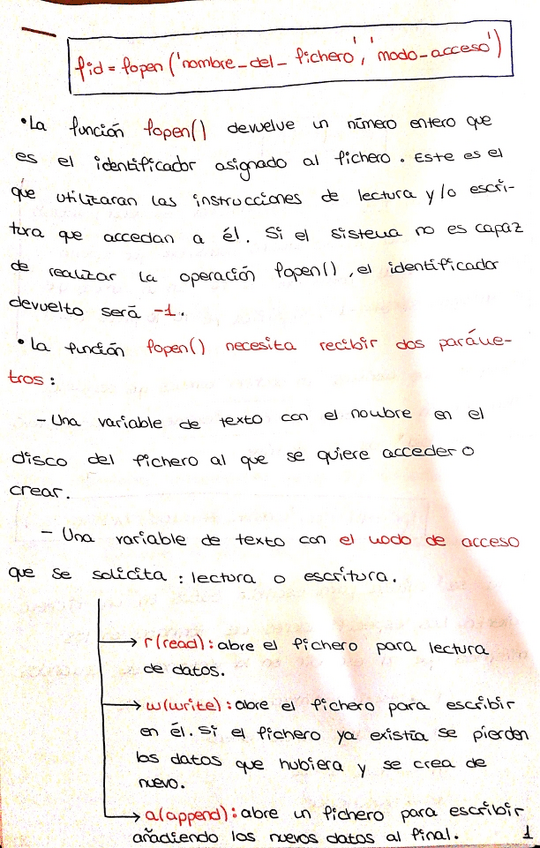 fid = fopen ('nombre_del_fichero', 'modo_acceso')
•La función fopen() devuelve un número entero que
es el identificador asignado al fichero. Este es el
que utilizaran las instrucciones de lectura y/o escri-
tura que accedan a él. Si el sistema no es capaz
de realizar la operación fopen(), el identificador
devuelto será -1.
•La función fopen() necesita recibir dos paráme-
tros:
- Una variable de texto con el nombre en el
disco del fichero al que se quiere acceder o
crear.
- Una variable de texto con el modo de acceso
que se solicita: lectura o escritura.
→ r(read): abre el fichero para lectura
de datos.
→ w(write): abre el fichero para escribir
en él. Si el fichero ya existía se pierden
los datos que hubiera y se crea de
nuevo.
→ a(append): abre un fichero para escribir
añadiendo los nuevos datos al final.
1